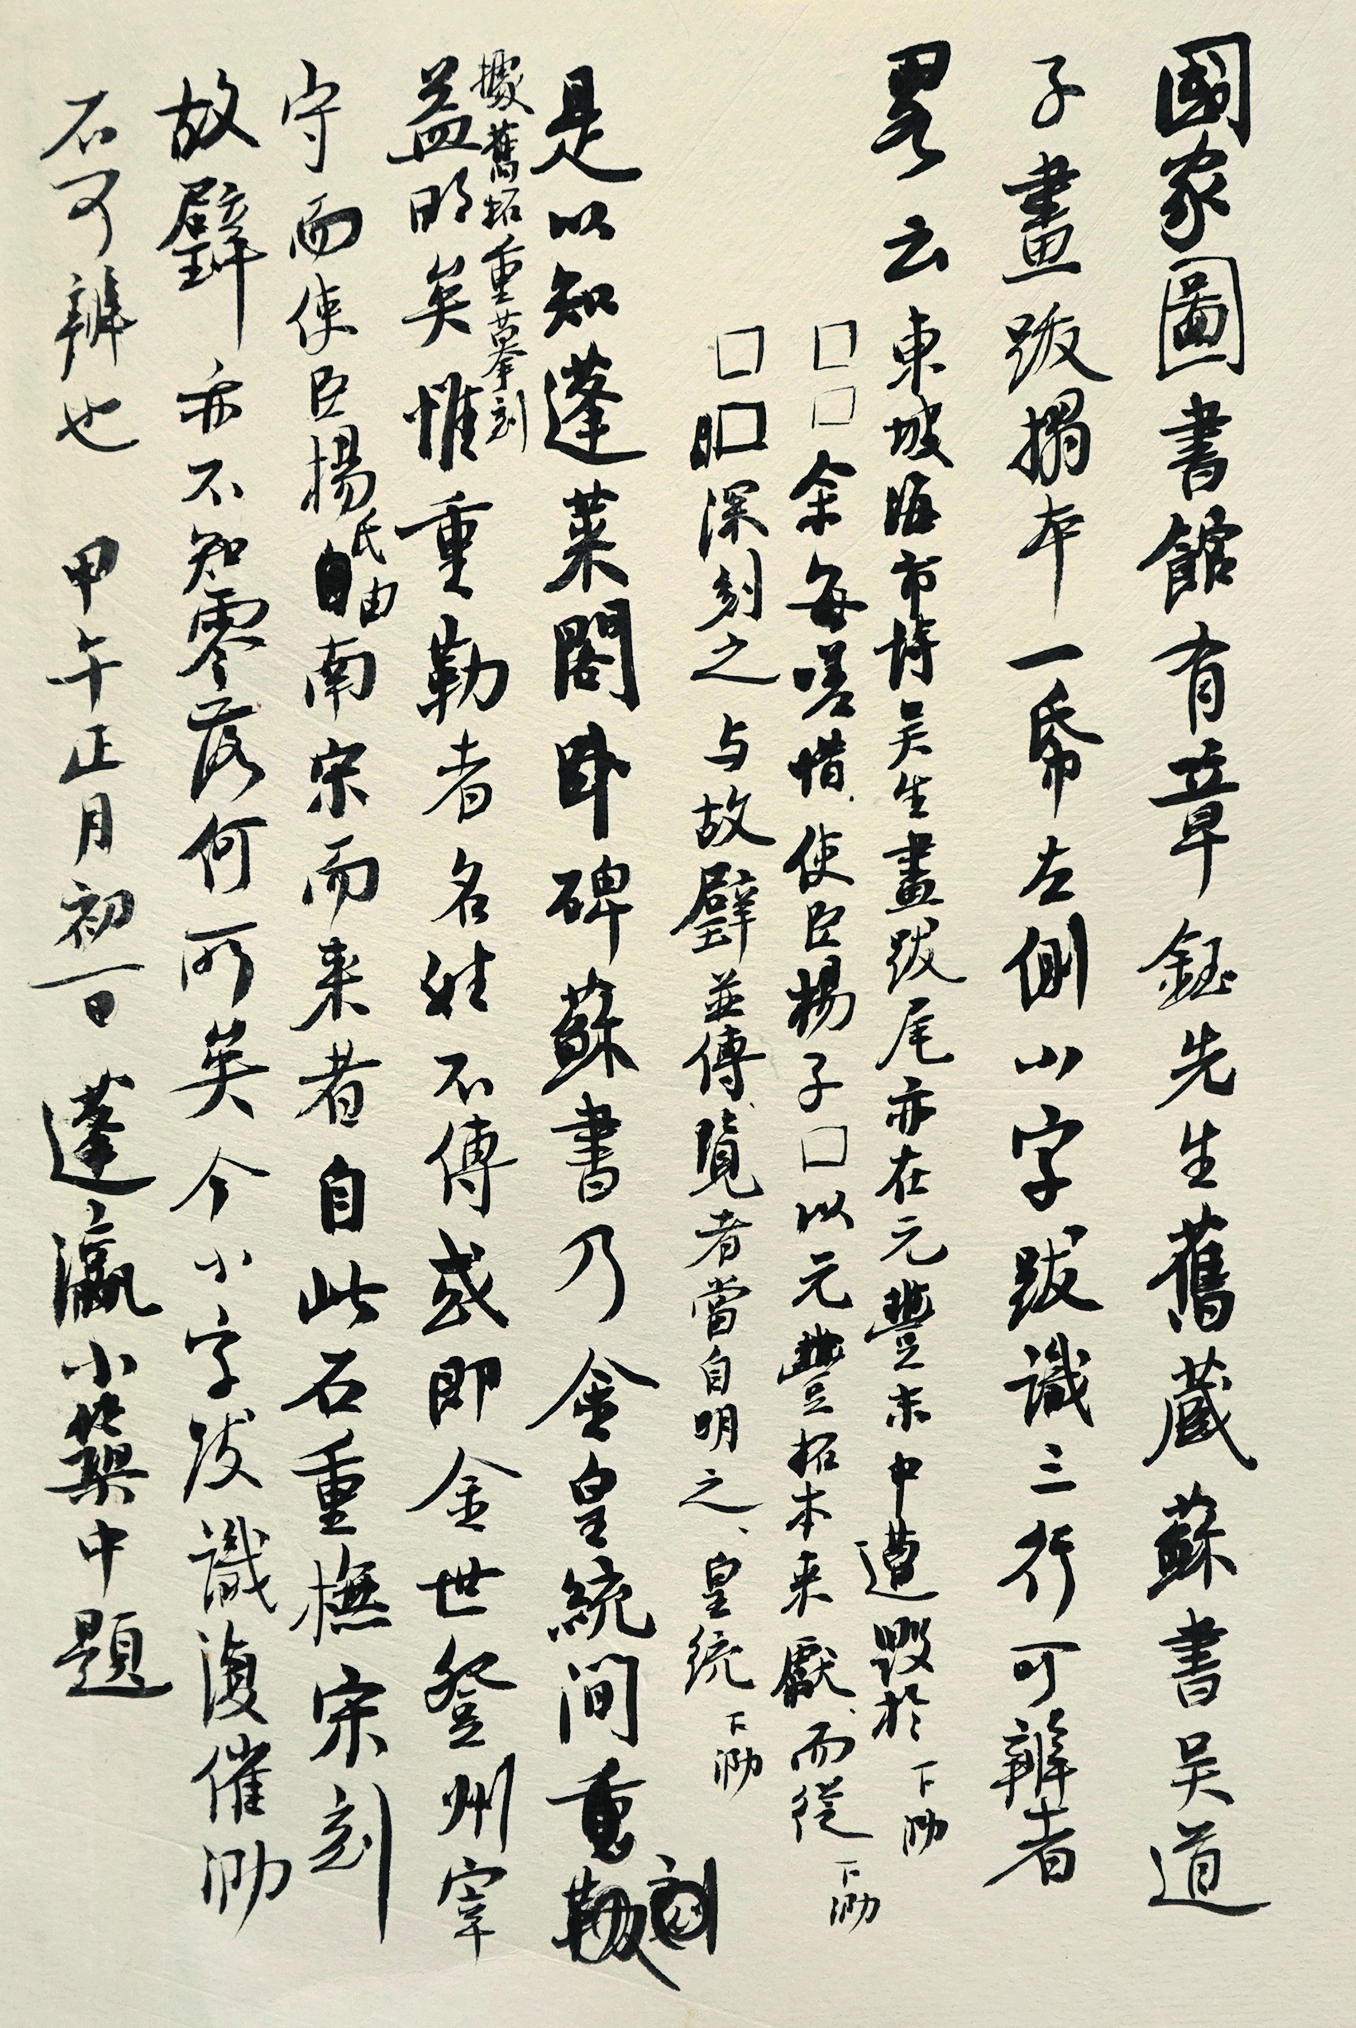 國家圖書館有章鈺先生舊蔵蘇書吴道
子畫跋搨本一帋左側小字跋識三行可辨者
畧云東坡海市詩吴生畫跋尾亦在元豐末中遭毀於下泐
□□余每嗟惜使臣楊子□以元豐拓本来獻而從下泐
□□深刻之与故壁並傳覽者當自明之皇統下泐
是以知蓬莱閣卧碑蘇書乃金皇統间重刻
據舊拓重摹刻
益明矣惟重勒者名姓不傳或即金世登州宰
守而使臣楊氏自由南宋而来者自此石重撫宋刻
故壁亦不知零落何所矣今小字跋識復催泐
不可辨也 甲午正月初一日 蓬瀛小築中題